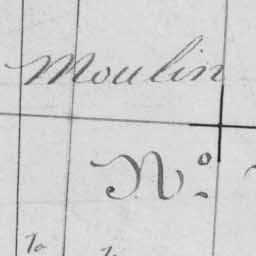 Moulin
N°.